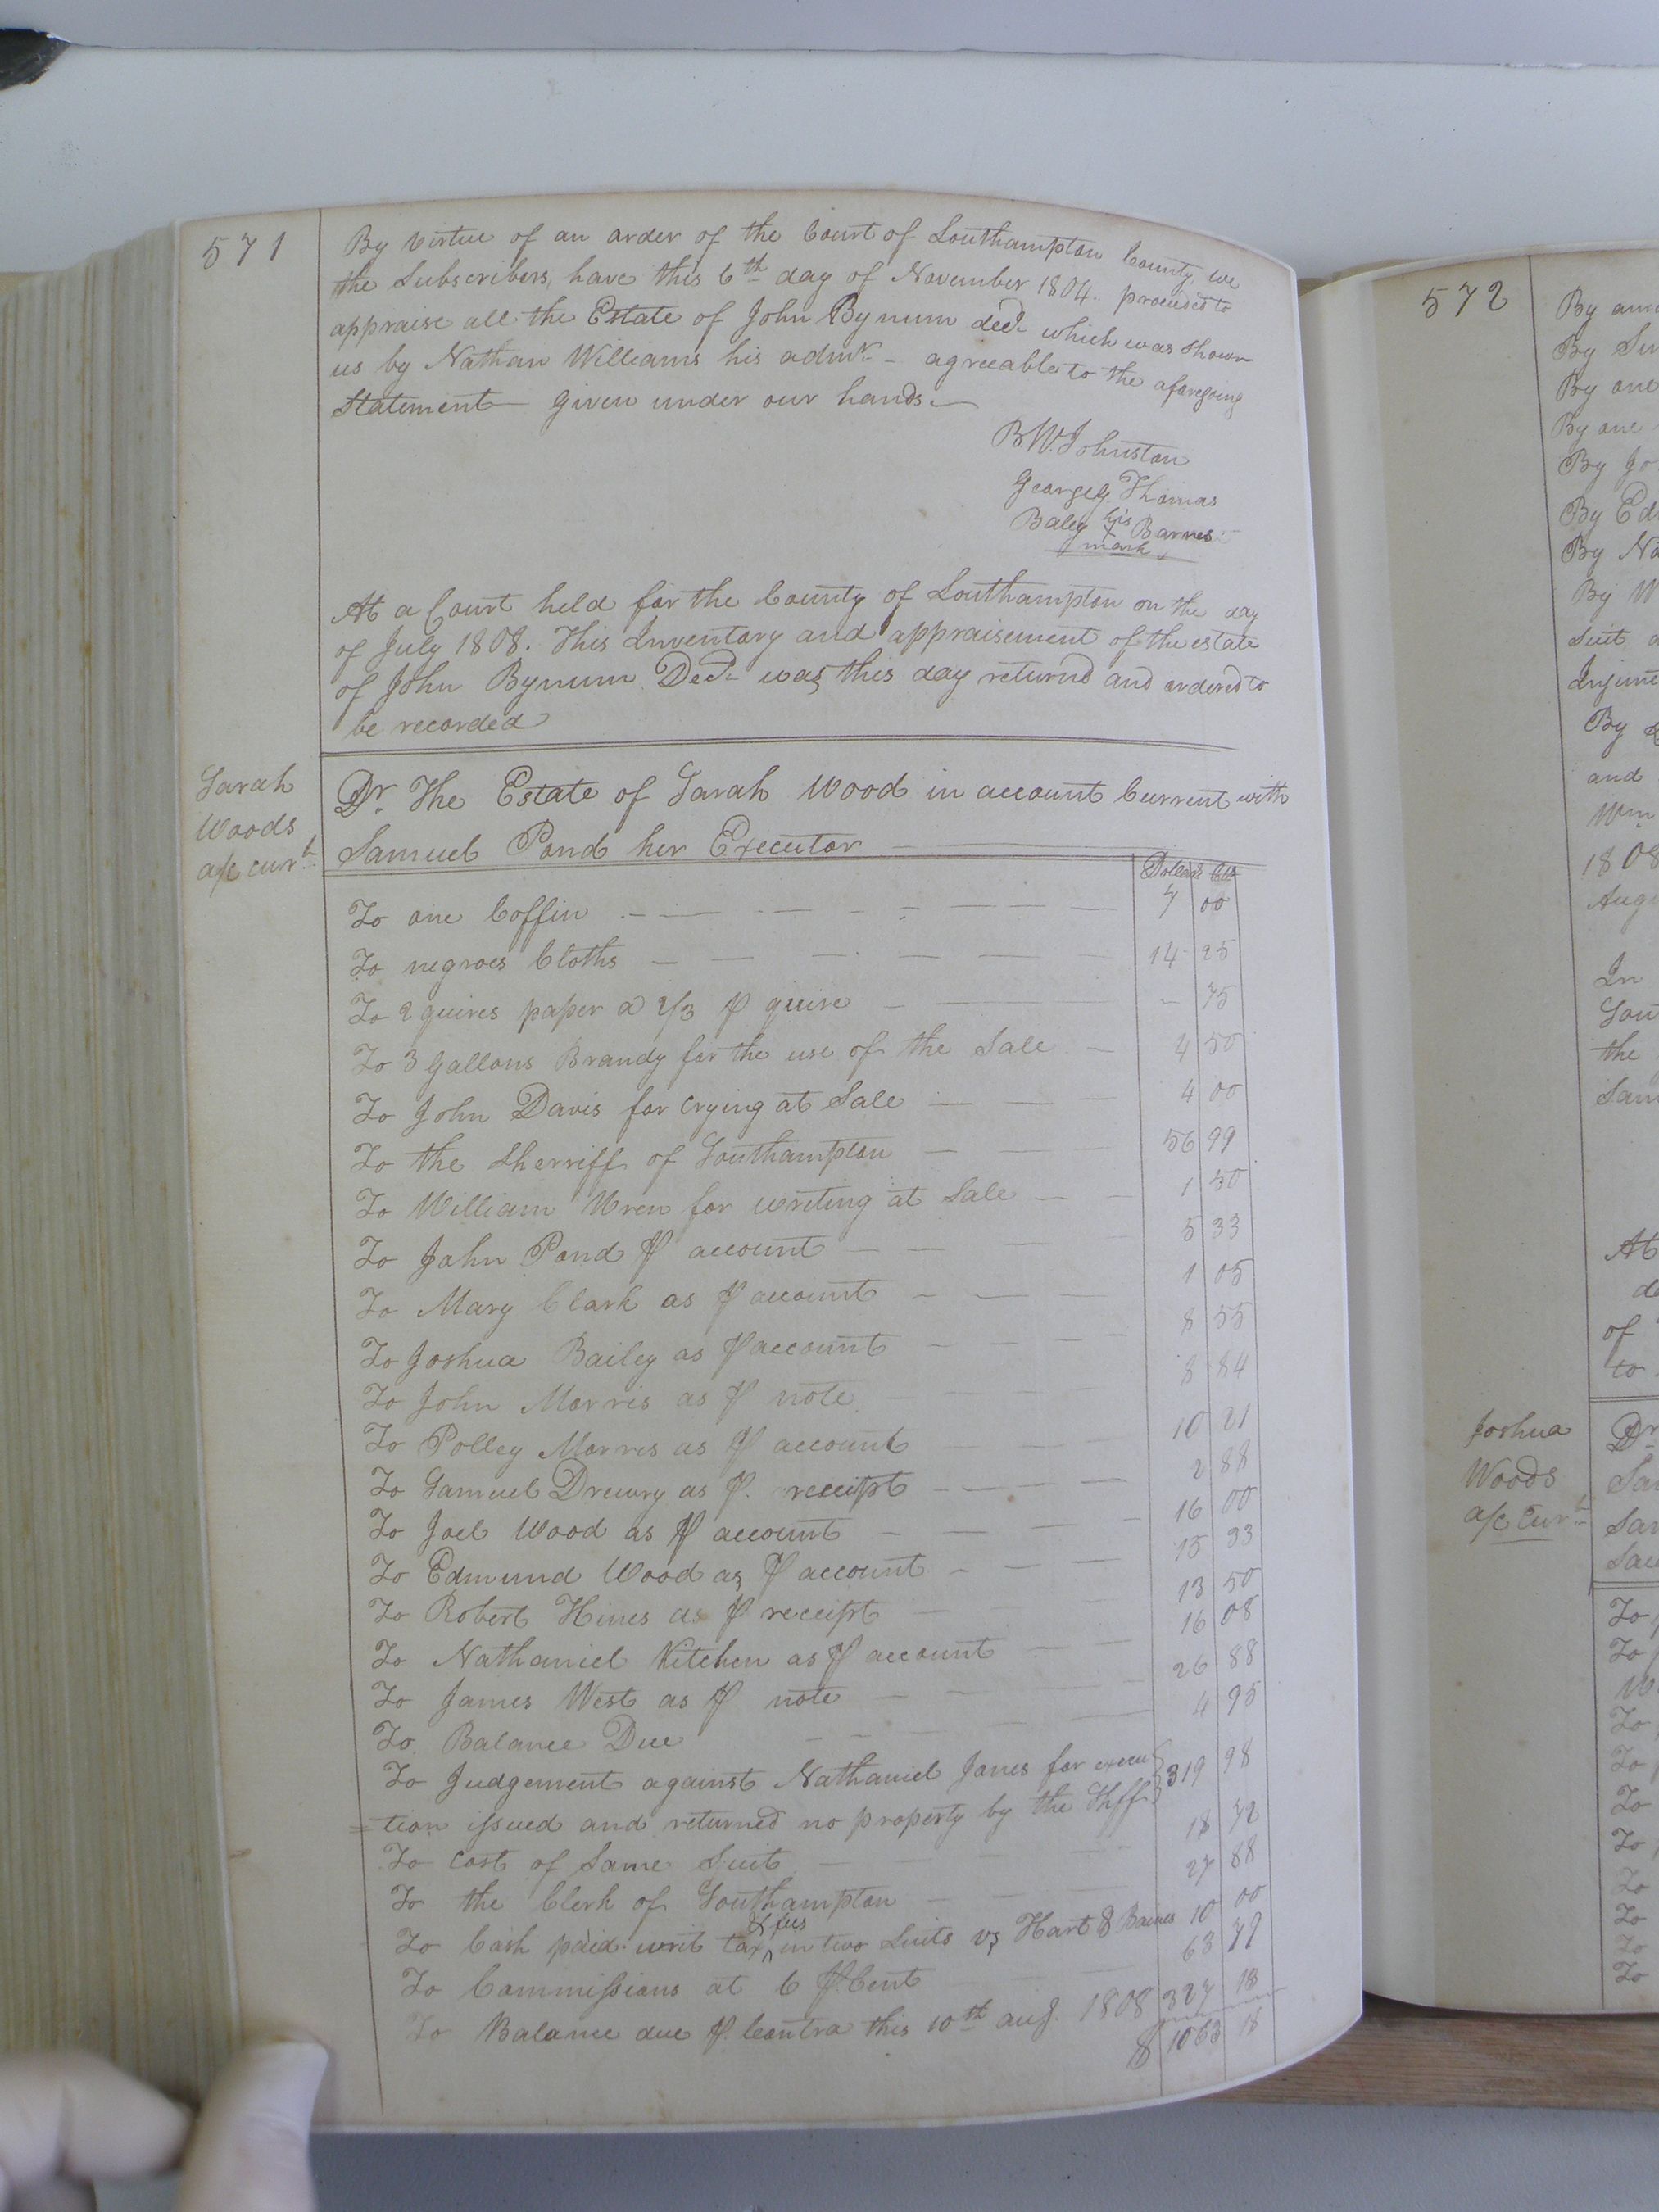 571
By virtue of an order of the Court of Southampton County, we
the Subscribers, have this 6th day of November 1804. proceeded to
appraise all the Estate of John Bynum decd which was shown
us by Nathan Williams his admr - agreeable to the aforegoing
Statement - Given under our hands.
B W. Johnston
George G. Thomas
Baley his Barnes
mark
At a Court held for the County of Southampton on the day
of July 1808. This Inventory and appraisement of the estate
of John Bynum Decd was this day returnd and ordered to
be recorded
Sarah
Woods
a/c curt
Dr. The Estate of Sarah Wood in account Current with
Samuel Pond her Executor
Dollars Cts
To one Coffin 7 00
To negroes Cloths 14 25
To 2 quires paper a 2/3 ⅌ quire - 75
To 3 Gallons Brandy for the use of the Sale 4 50
To John Davis for Crying at Sale 4 00
To the Sherriff of Southampton 56 99
To William Wren for writing at Sale 1 50
To John Pond ⅌ account 5 33
To Mary Clark as ⅌ account 1 05
To Joshua Bailey as ⅌ account 8 55
To John Morris as ⅌ note 8 84
To Polley Morris as ⅌ account 10 21
To Samuel Drewry as ⅌. receipt 2 88
To Joel Wood as ⅌ account 16 00
To Edmund Wood as ⅌ account 15 33
To Robert Hines as ⅌ receipt 13 50
To Nathaniel Kitchen as ⅌ account 16 08
To James West as ⅌ note 26 88
To Balance Due 4 95
To Judgement against Nathaniel Jones for execu
=tion issued and returned no property by the Shff 319 98
To Cost of Same Suit 18 72
To the Clerk of Southampton 27 88
To Cash paid writ tax & fees in two Suits vs Hart & Baines 10 00
To Commissions at 6 ⅌ Cent 63 79
To Balance due ⅌ Contra this 10th aug. 1808 327 18
$ 1063 18
572
By
By
By one
By one
By
By
By
By
Suit
By
and
Wm
1808
In
the
At
of
to
Joshua
Woods
a/c Curt
Dr
To
To
To
To
To
To
To
To
To
To